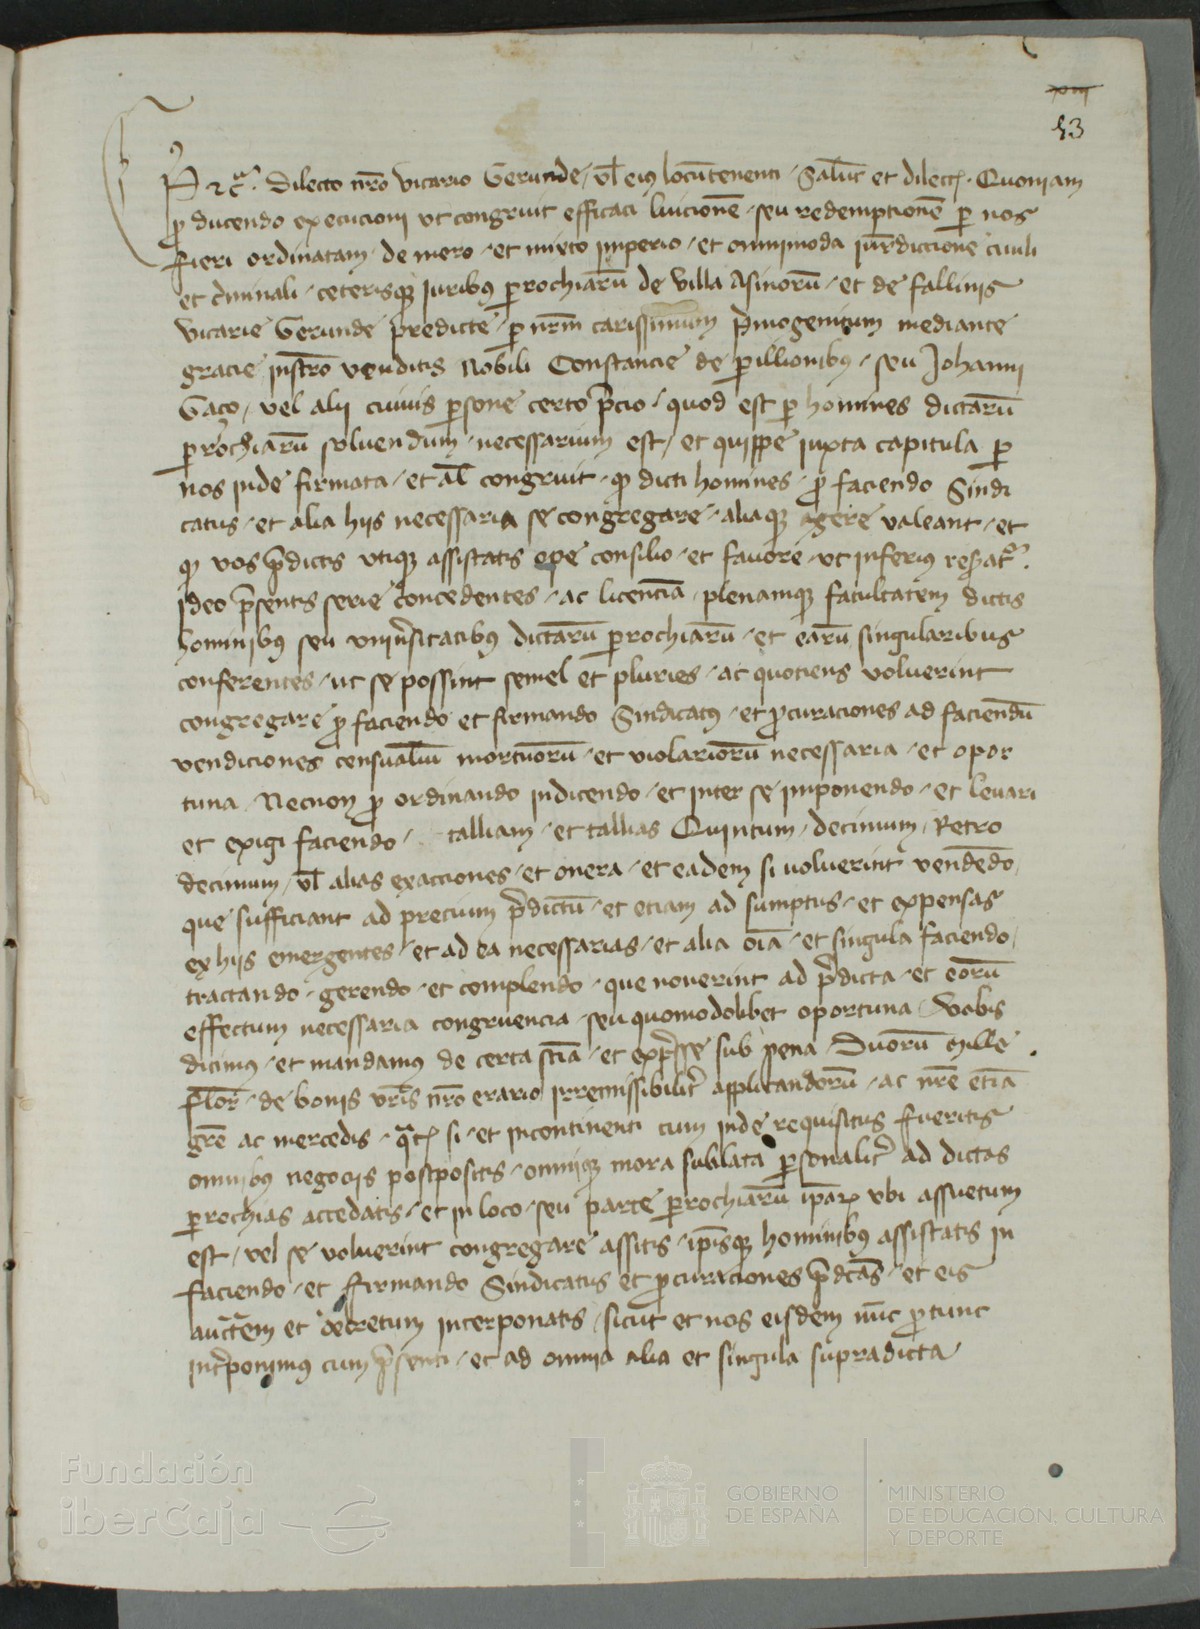 xiii
53
P. etc̄ᵃ. Dilecto nr̄o vicario Gerunde, vl̄ eius locūtenenti, Salūt et dilectꝭ. Quoniam
ꝓ ducendo execucioni vt congruit efficaci luicionē, seu redemptionē ꝑ nos
fieri ordinatam, de mero, et mixto imperio, et omnimoda iur̄diccione ciuili
et cͥminali, ceterisqꝫ iuribꝰ ꝑrochiarū de villa Asinorū, et de fallinis
vicarie Gerunde predicte, ꝑ nr̄m carissimum pͥmogenitum mediante
gracie instr̄o venditis Nobili Constancie de ꝑillionibꝰ, seu Johanni
Gaco, vel alij cuiuis ꝑsone certo p̄cio, quod est ꝑ homines dictarū
ꝑrochiarū soluendum, necessarium est, et quippe iuxta capitula ꝑ
nos inde firmata, et al̄ congruit, ꝙ dicti homines, ꝓ faciendo Sindi
catus, et alia hijs necessaria se congregare, aliaqꝫ agere valeant, et
ꝙ vos p̄dictis vtiqꝫ assistatis ope consilio, et fauore, vt inferius
Ideo p̄sentis serie concedentes, ac licenciā, plenamqꝫ facultatem dictis
hominibꝰ seu vniuˀsitatibꝰ dictarū ꝑrochiarū, et earū singularibus
conferentes, ut se possint semel et pluries, ac quotiens voluerint
congregare ꝓ faciendo et firmando Sindicatꝰ, et ꝓcuraciones ad faciendū
vendiciones censualiū mortuorū, et violariorū necessaria, et opor
tuna, Necnon ꝓ ordinando indicendo, et inter se imponendo, et leuari
et exigi faciendo, talliam, et tallias Quintum, decimum, Retro
decimum, vl̄ alias exacciones, et onera, et eadem si voluerint vendēdo,
que sufficiant ad precium p̄dictū, et etiam ad sumptus, et expensas
ex hijs emergentes, et ad ea necessarias, et alia oīa, et singula faciendo,
tractando, gerendo, et complendo, que nouerint ad p̄dicta, et eorū
effectum necessaria congruencia, seu quomodolibet oportuna, Vobis
dicimꝰ, et mandamus de certa sciā, et exp̄sse sub pena, Duorū mille
Flor̄, de bonis vr̄is nr̄o erario irremissibilitˀ applicandorū, ac nr̄e etiā
gr̄e ac mercedis, qᵃtꝭ si, et incontinenti cum inde requisitus fueritis
omnibꝰ negocijs postpositis, omniqꝫ mora sublata ꝑsonalitˀ ad dictas
ꝑrochias accedatis, et in loco, seu parte ꝑrochiarū ip̄arꝝ vbi assuetum
est, vel se voluerint congregare assitis, ip̄isqꝫ hominibꝰ assistatis in
faciendo, et firmando Sindicatus et ꝓcuraciones p̄dcās, et eis
auctᵃtem et decretum interponatis, sicut et nos eisdem nūc ꝓ tunc
intˀponimꝰ cum p̄senti, et ad omnia alia et singula supradicta
Fundación
iberCaja
GOBIERNO
DE ESPAÑA
MINISTERIO
DE EDUCACIÓN, CULTURA
Y DEPORTE